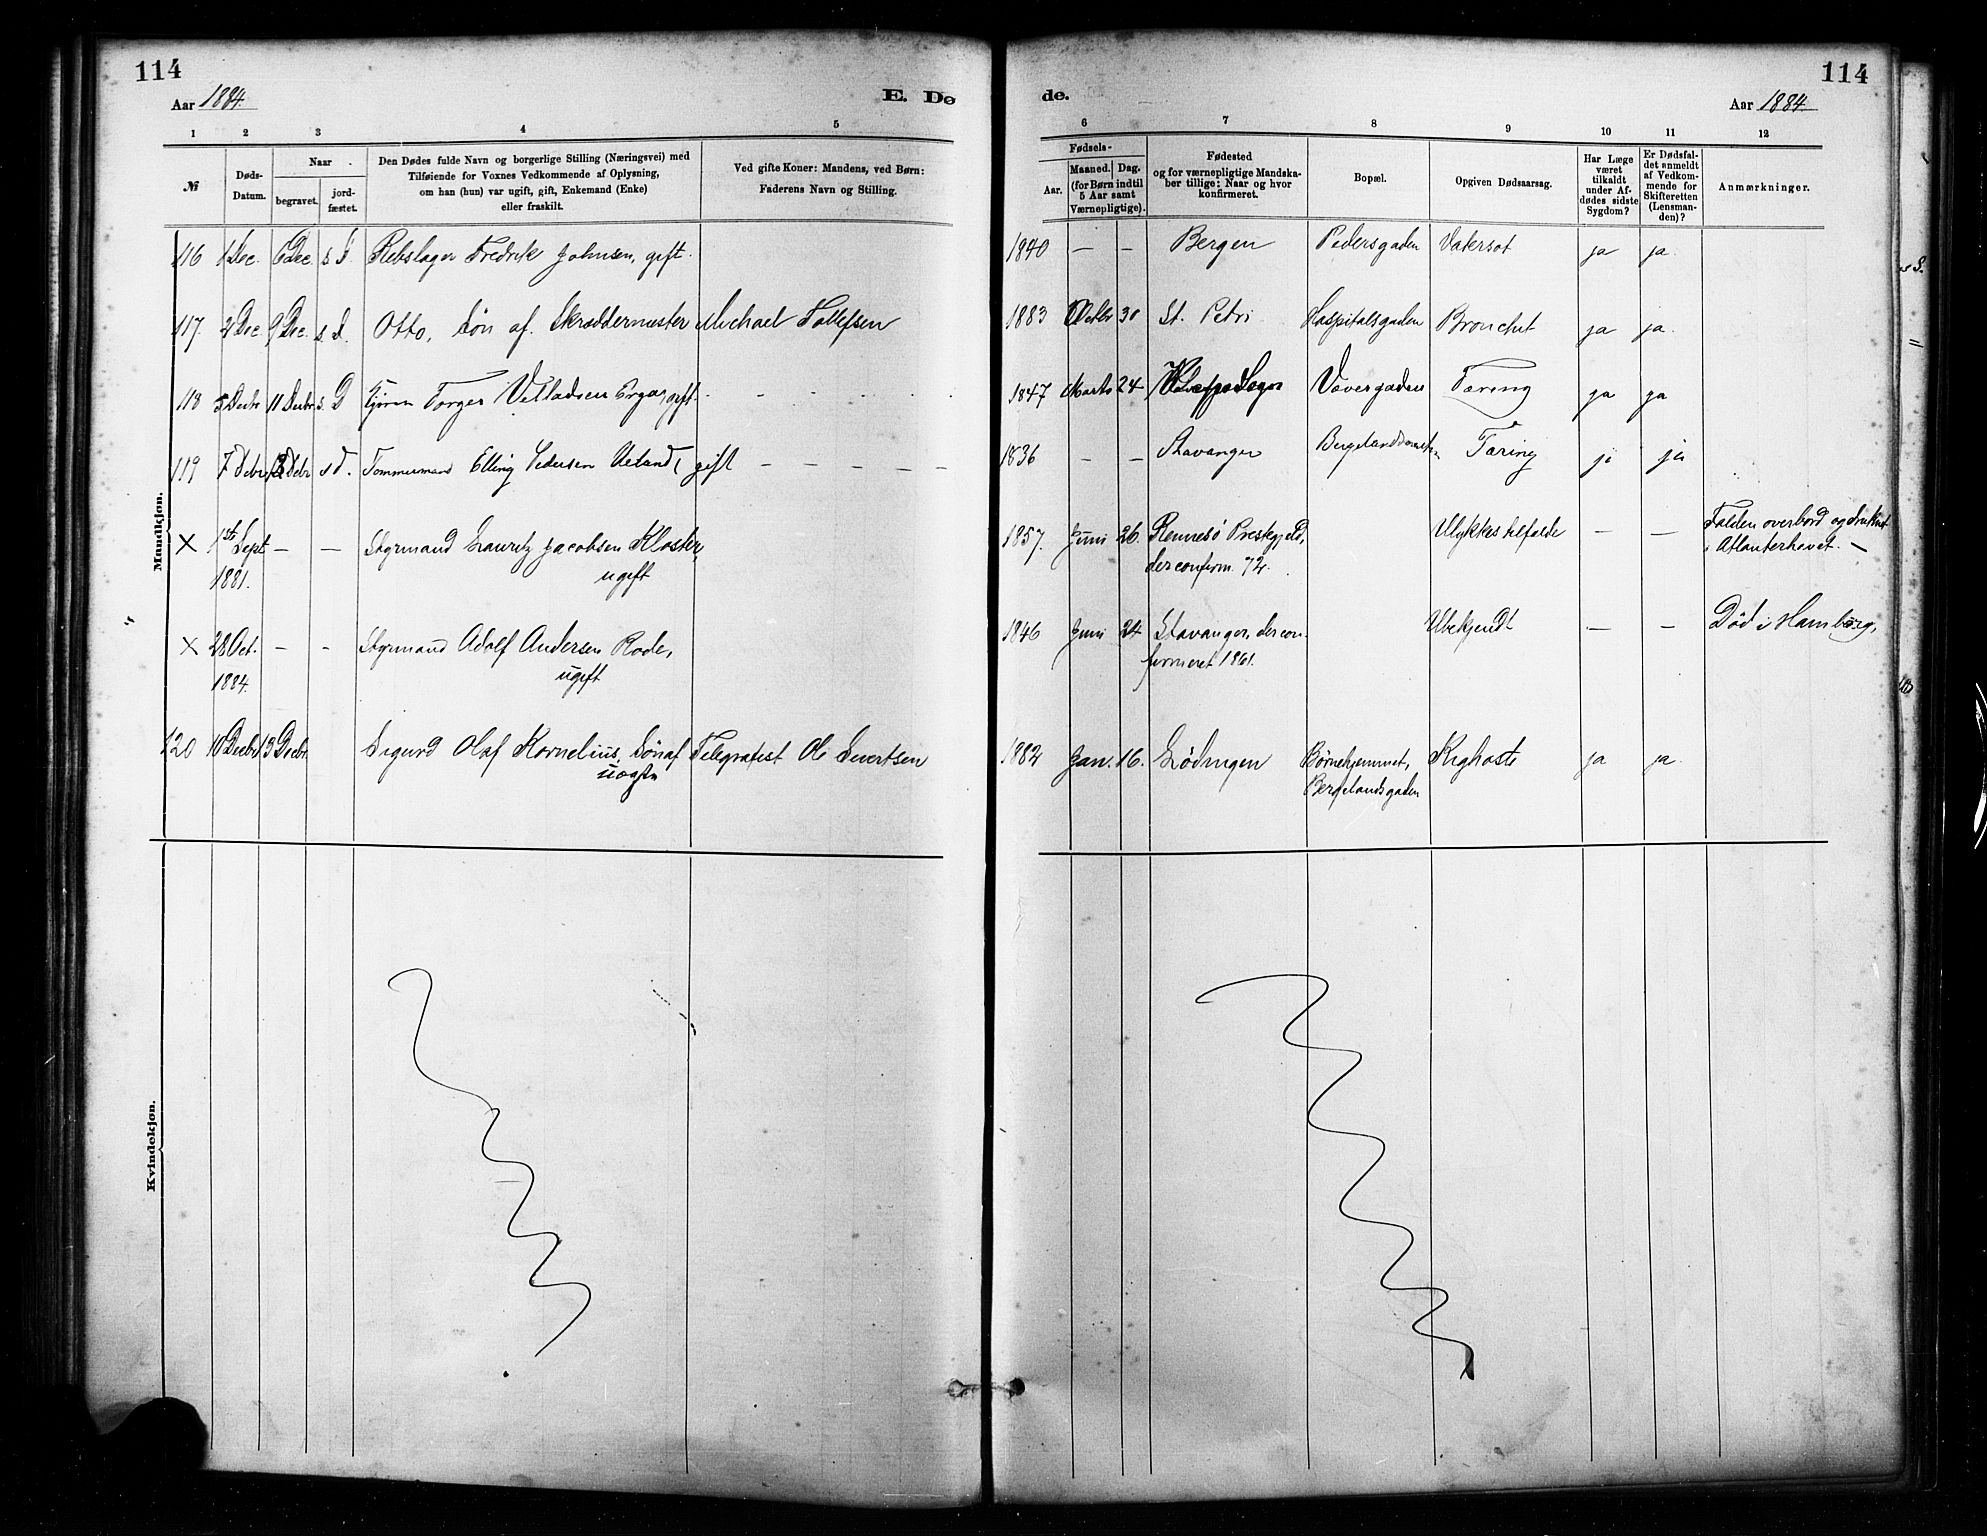 114
Aar 1884.
E. Dø
1 2 3 4 5
№
Døds-
Datum.
Naar
begravet.
jord-
fæstet.
Den Dødes fulde Navn og borgerlige Stilling (Næringsvei) med
Tilføiende for Voxnes Vedkommende af Oplysning,
om han (hun) var ugift, gift, Enkemand (Enke)
eller fraskilt.
Ved gifte Koner: Mandens, ved Børn:
Faderens Navn og Stilling.
Mandkjøn.
116 1 Dec. 6 Dec. s. D. Rebslager Fredrik Johnsen, gift.
117. 2 Dec 9 Dec. s. d. Otto, Søn af. Skræddermester Michael Tollefsen
118 5 Decbr 11 Decbr s. D Torger Velladsen Erga, gift - - - - -
119 7 Debr 13 Debr s d. Tømmermand Elling Pedersen Ueland, gift - - - - -
× 1st Sept - - Styrmand Lauritz Jacobsen Kloster,
1881. ugift
× 28 Oct. - - Styrmand Adolf Andersen Rode,
1884. ugift
120 10 Decbr 13 Decbr. Sigurd Olaf Kornelius, Søn af Telegrafist Ole Sivertsen
uægte
Kvindekjøn.
114
de.
Aar 1884
6 7 8 9 10 11 12
Fødsels-
Aar.
Maaned. Dag.
(for Børn indtil
5 Aar samt
Værnepligtige).
Fødested
og for værnepligtige Mandska-
ber tillige: Naar og hvor
konfirmeret.
Bopæl.
Opgiven Dødsaarsag.
Har Læge
været
tilkaldt
under Af-
dødes sidste
Sygdom?
Er Dødsfal-
det anmeldt
af Vedkom-
mende for
Skifteretten
(Lensman-
den)?
Anmærkninger.
1840 - - Bergen Pedersgaden Vatersot ja ja.
1883 Octbr 30 St. Petri Hospitalsgaden Bronchit ja ja.
1847 Marts 24 Vævergaden Tæring ja ja
1836 - - Stavanger Tæring ja ja
1857. Juni 26. Rennesø Prestegjeld, Ulykkestilfælde - - Falden overbord og druknet
der confirm. 72. i Atlanterhavet. -
1846 Juni 24 Stavanger, der con- Ubekjendt - - Død i Hamburg,
firmeret 1861.
1882 Jan. 16. Lødingen Børnehjemmet, Kighoste ja ja.
Bergelandsgaden